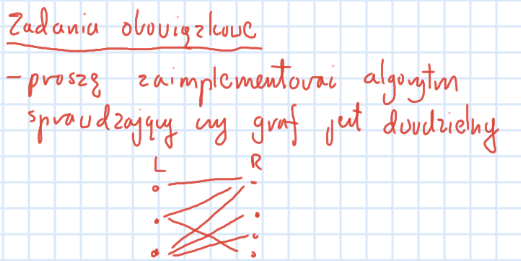 Zadania obowiązkowe
- proszę zaimplementować algorytm
sprawdzający czy graf jest dwudzielny
L R